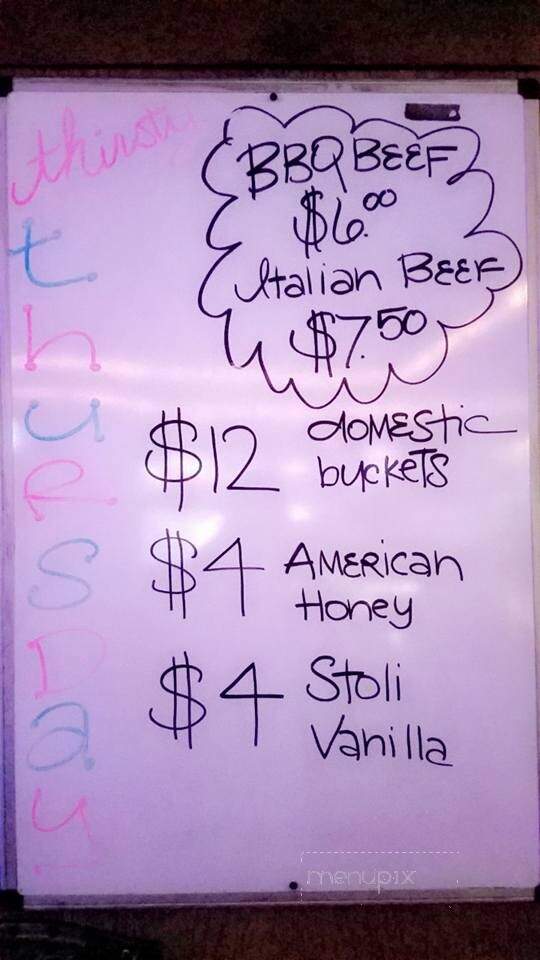 thirsty
thuRSDay
BBQ BEEF
$6.00
Italian BEEF
$7.50
$12 dOMEStic
buckETS
$4 AMERican
Honey
$4 Stoli
Vanilla
menupix